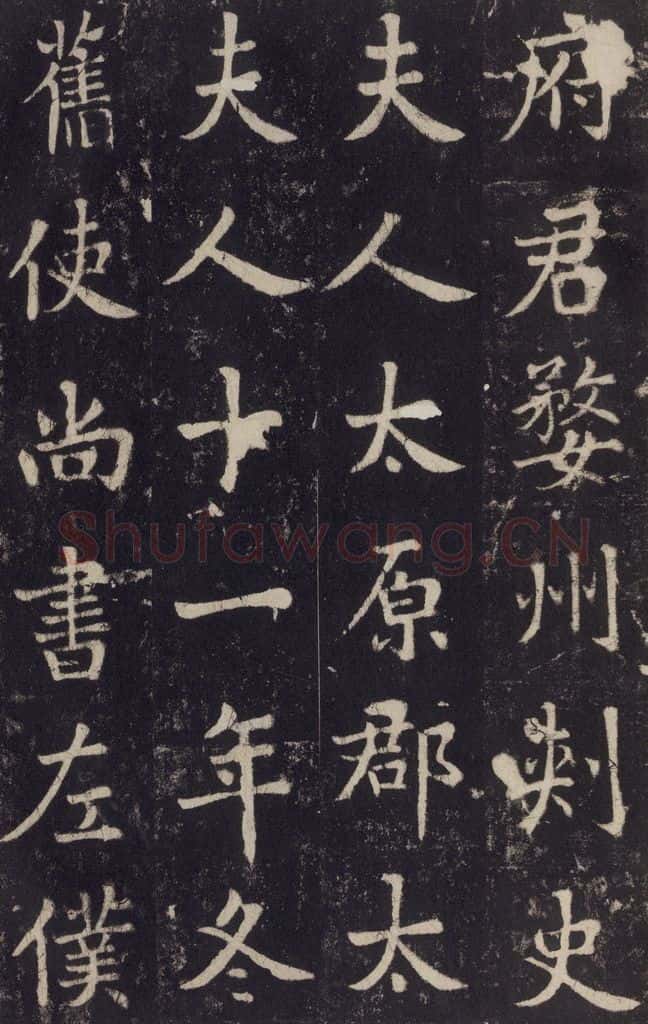 府君婺州刺史
夫人太原郡太
夫人十一年冬
舊使尚書左僕
Shufawang.CN